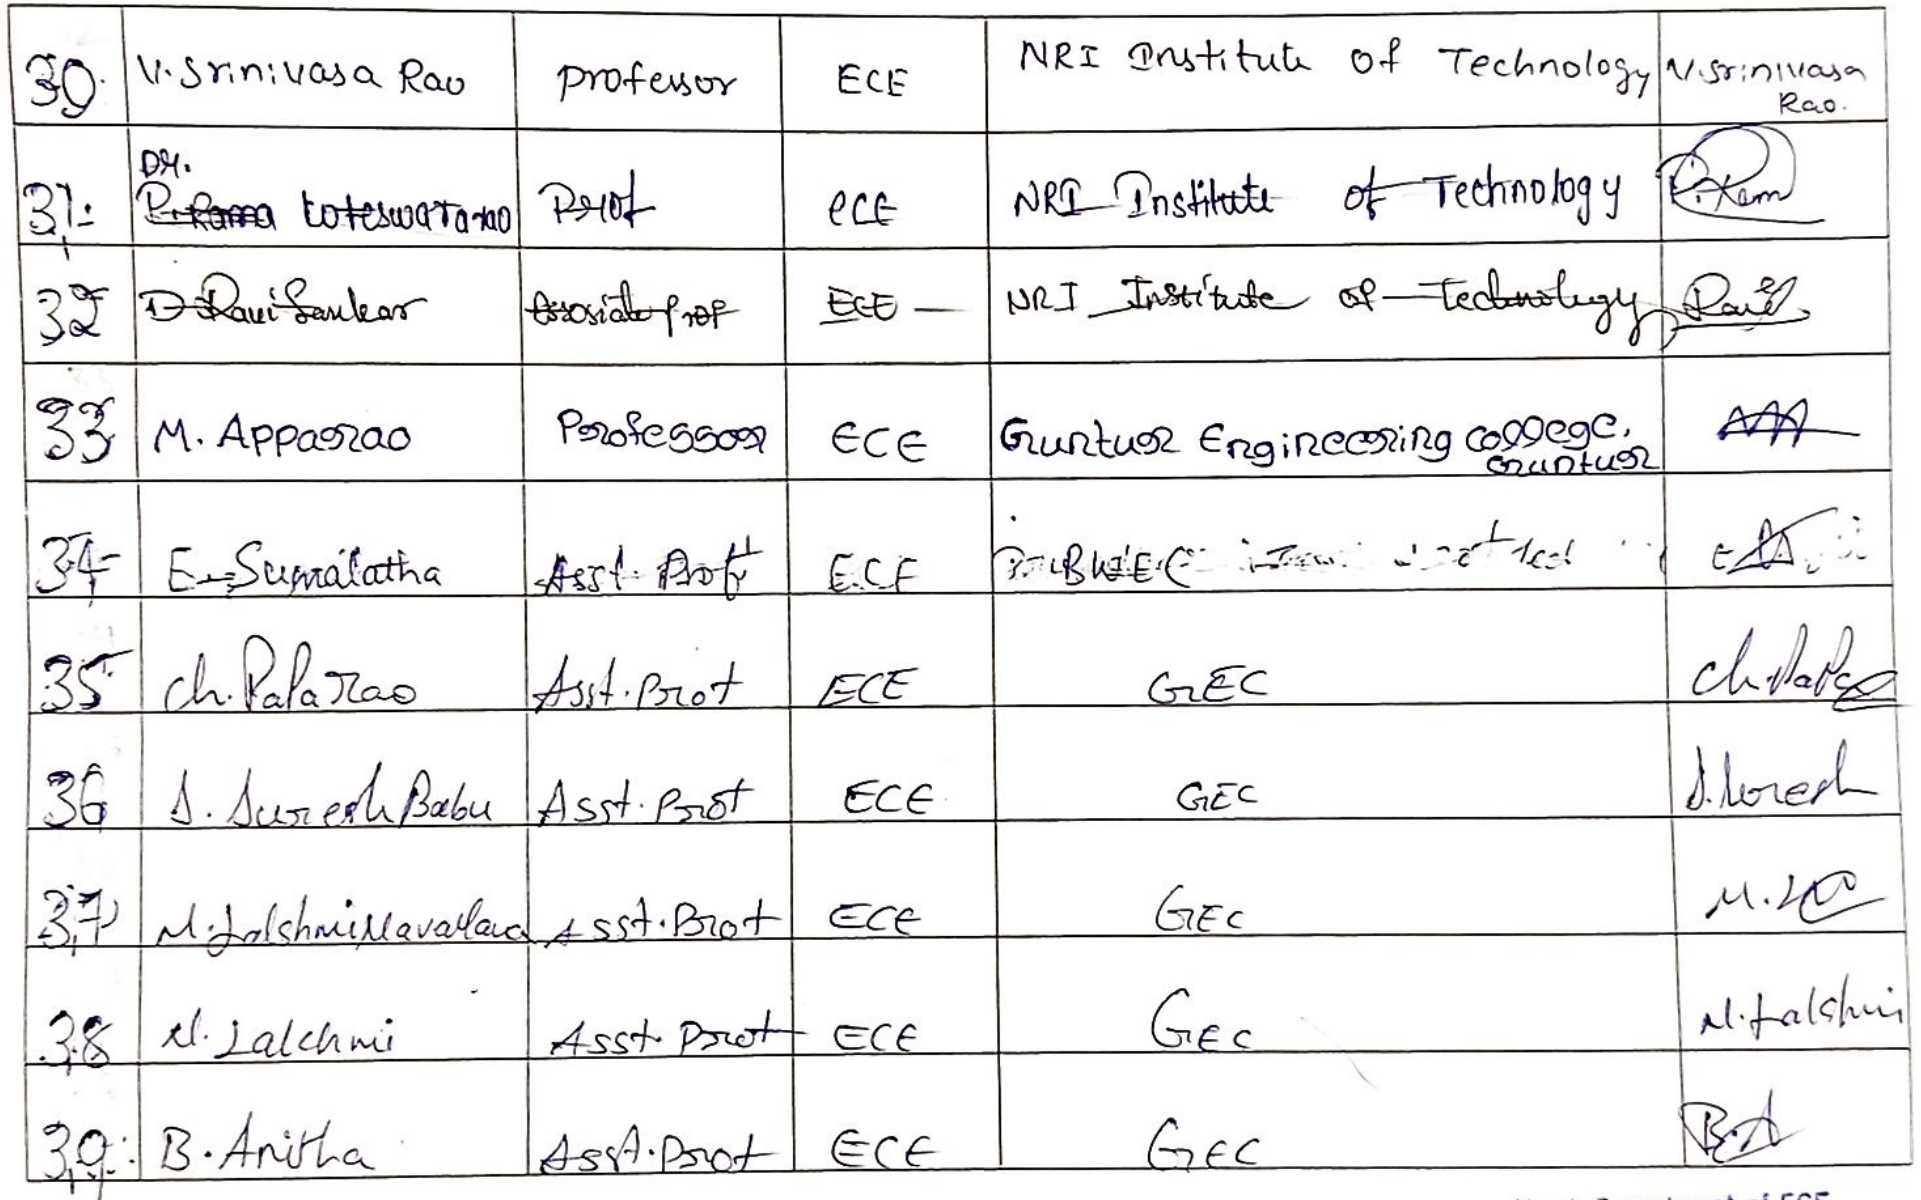 30. V. Srinivasa Rao Professor ECE NRI Institute of Technology V. Srinivasa Rao.
31. Dr. P. Rama koteswararao Prof ECE NRI Institute of Technology P. Ram
32 D Ravi Sankar Associate prof ECE NRI Institute of Technology Ravi
33 M. Apparao Professor ECE Guntur Engineering college, Guntur
34 E. Supraja latha Asst. Prof ECE
35 Ch. Papa Rao Asst. Prof ECE GEC Ch. Papa
36 S. Suresh Babu Asst. Prof ECE GEC S. Suresh
37 Asst. Prof ECE GEC
38 N. Lakshmi Asst. Prof ECE GEC N. Lakshmi
39. B. Anitha Asst. Prof ECE GEC B. A